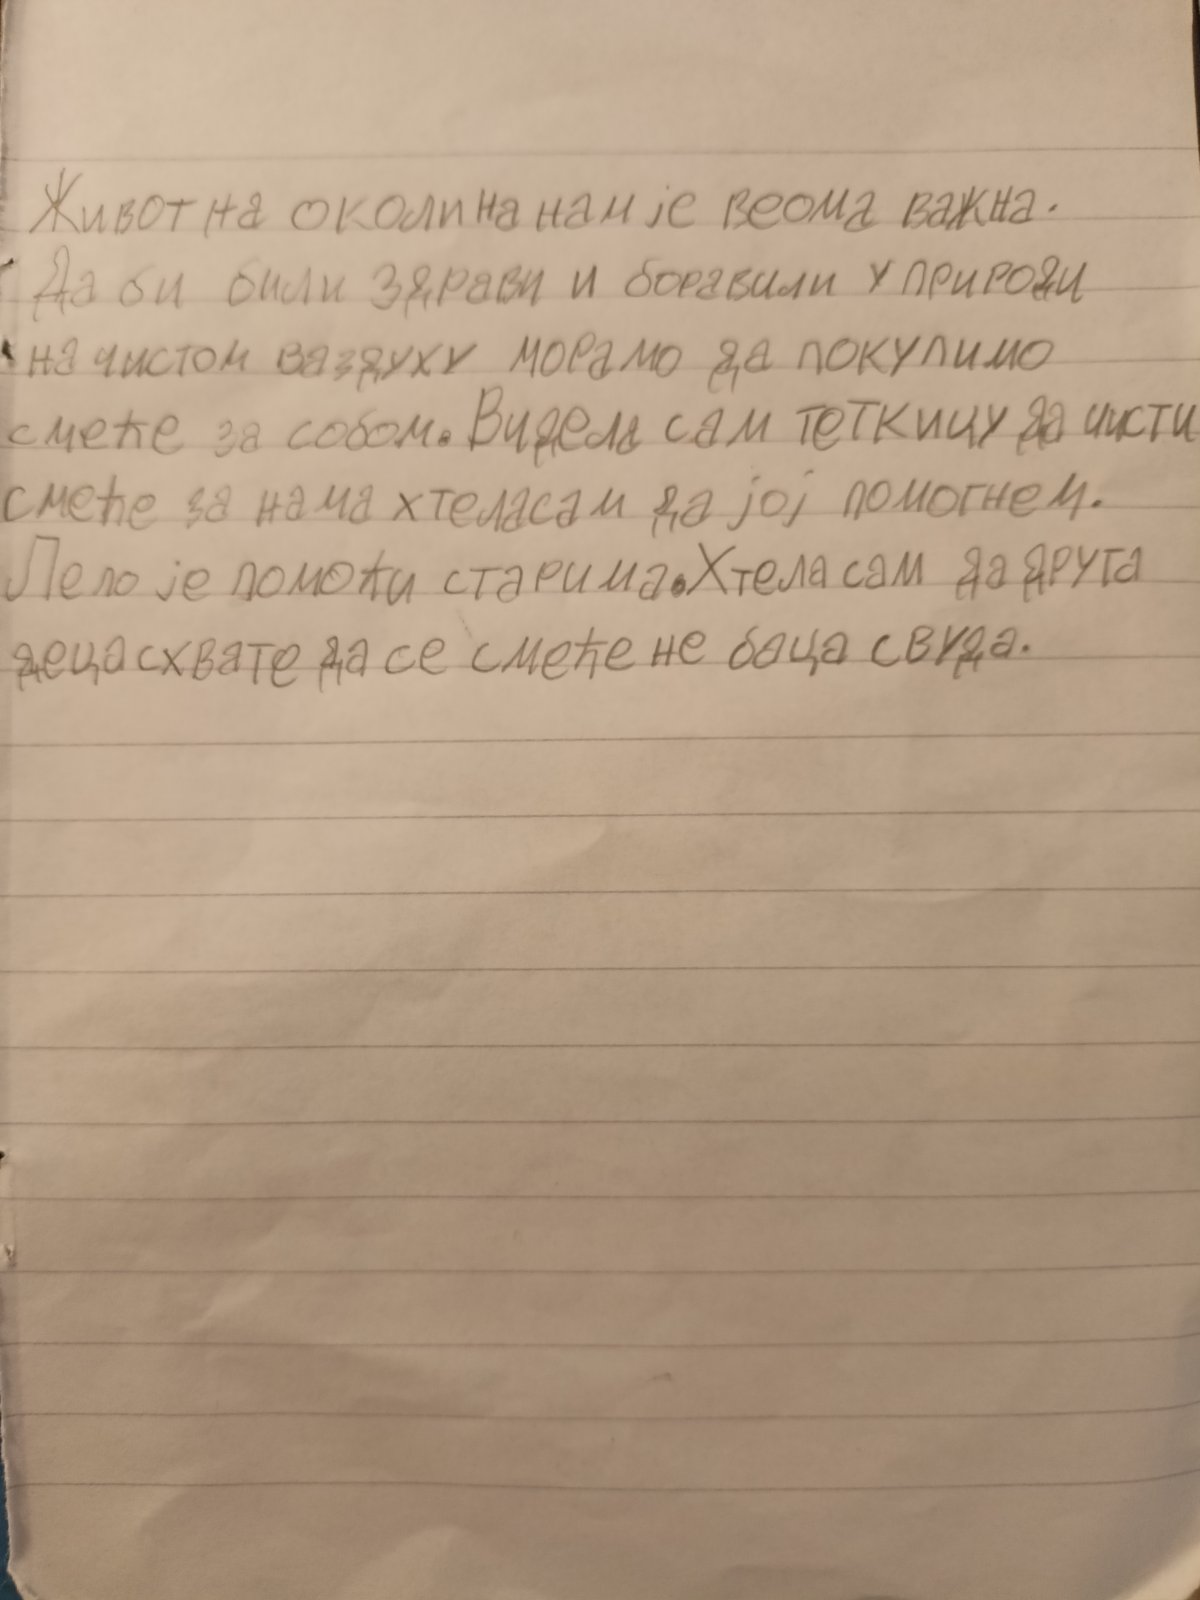 Животна околина нам је веома важна.
Да би били здрави и боравили у природи
на чистом ваздуху морамо да покупимо
смеће за собом. Видела сам теткицу да чисти
смеће за нама хтела сам да јој помогнем.
Лепо је помоћи старима. Хтела сам да друга
деца схвате да се смеће не баца свуда.